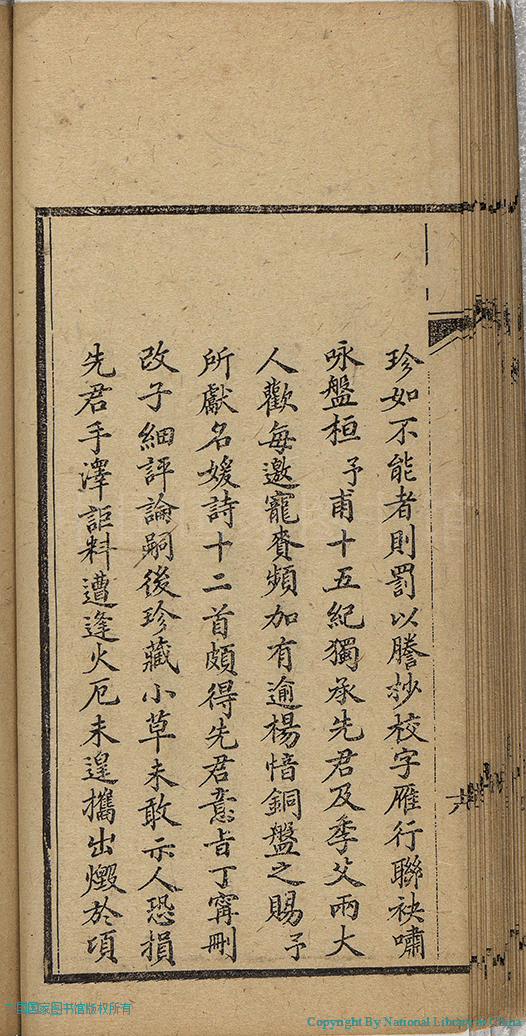 珍如不能者則罰以謄抄校字雁行聯袂嘯
咏盤桓予甫十五紀獨承先君及季父兩大
人歡每邀寵賚頻加有逾楊愔銅盤之賜予
所獻名媛詩十二首頗得先君意旨丁寗刪
改子細評論嗣後珍藏小草未敢示人恐損
先君手澤詎料遭逢火厄未遑攜出燬於項
六
中国国家图书馆版权所有
Copyright By National Library of China